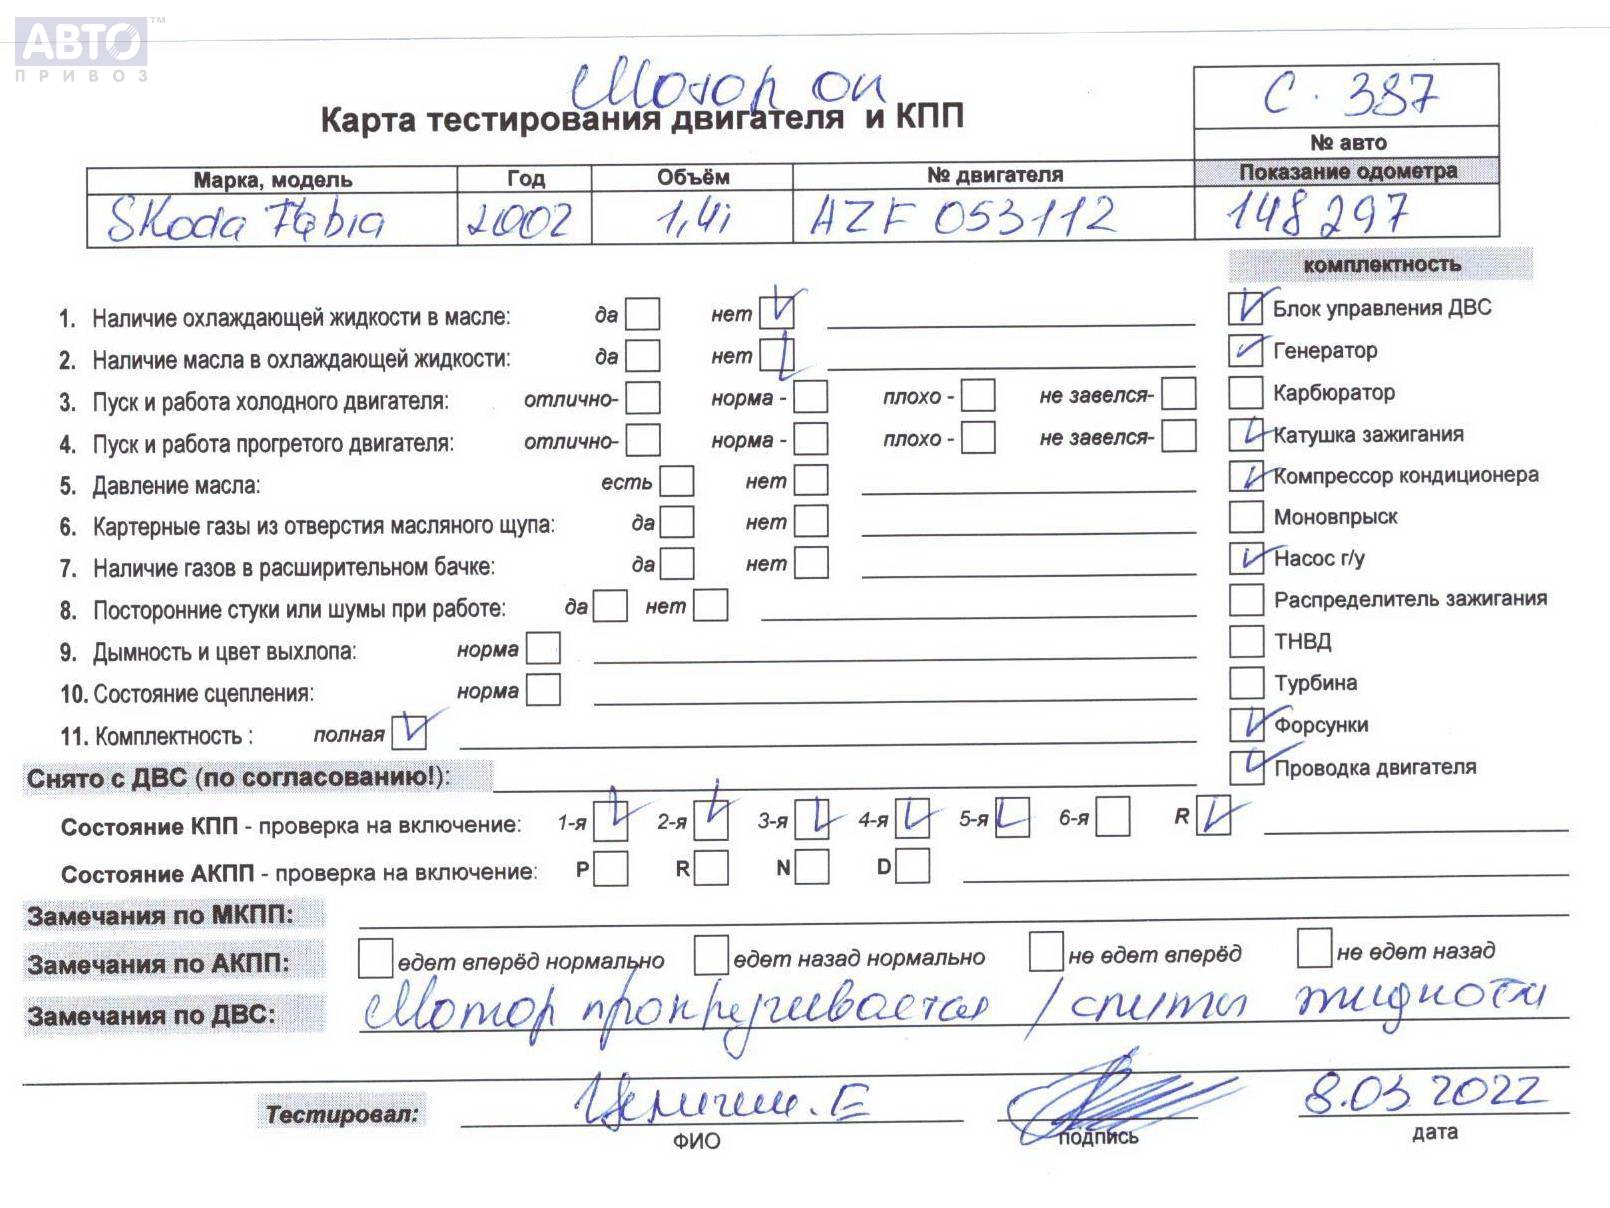 АВТО™
ПРИВОЗ
Мотор ок
Карта тестирования двигателя и КПП
С. 387
№ авто
Марка, модель Год Объём № двигателя Показание одометра
Skoda Fabia 2002 1,4i AZF 053112 148297
комплектность
1. Наличие охлаждающей жидкости в масле: да нет
Блок управления ДВС
2. Наличие масла в охлаждающей жидкости: да нет
Генератор
3. Пуск и работа холодного двигателя: отлично- норма - плохо - не завелся-
Карбюратор
4. Пуск и работа прогретого двигателя: отлично- норма - плохо - не завелся-
Катушка зажигания
5. Давление масла: есть нет
Компрессор кондиционера
6. Картерные газы из отверстия масляного щупа: да нет
Моновпрыск
7. Наличие газов в расширительном бачке: да нет
Насос г/у
8. Посторонние стуки или шумы при работе: да нет
Распределитель зажигания
9. Дымность и цвет выхлопа: норма
ТНВД
10. Состояние сцепления: норма
Турбина
11. Комплектность : полная
Форсунки
Снято с ДВС (по согласованию!):
Проводка двигателя
Состояние КПП - проверка на включение: 1-я 2-я 3-я 4-я 5-я 6-я R
Состояние АКПП - проверка на включение: P R N D
Замечания по МКПП:
Замечания по АКПП: едет вперёд нормально едет назад нормально не едет вперёд не едет назад
Замечания по ДВС: Мотор прокручивается / слиты жидкости
Тестировал: 8.03.2022
ФИО подпись дата